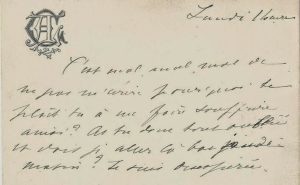 Lundi 1 heure
C'est mal, mal, mal de
ne pas m'écrire pourquoi te
plait tu à me faire souffrir
ainsi? As tu donc tout oublié
et dois je aller là bas
matin? Je suis désespérée.